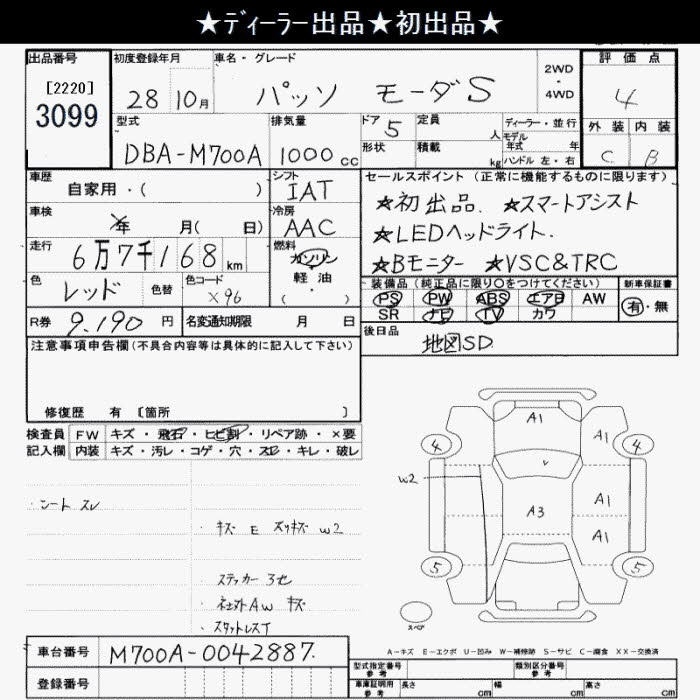 ★ディーラー出品★初出品★
出品番号 [2220] 3099
初度登録年月 28 10月
車名・グレード パッソ モーダS
2WD・4WD
評価点 4
型式 DBA-M700A
排気量 1000cc
ドア 5 定員 人
形状 積載 kg
ディーラー・並行
モデル年式 年
ハンドル 左・右
外装 内装
C B
車歴 自家用・( )
シフト IAT
車検 年 月( 日)
冷房 AAC
走行 6万7千168km
燃料 ガソリン 軽・油 ・( )
色 レッド 色替 色コード X96
R券 9,190円 名変通知期限 月 日
セールスポイント(正常に機能するものに限ります)
★初出品. ★スマートアシスト
★LEDヘッドライト.
★Bモニター ★VSC&TRC
装備品(純正品に限り○をつけてください) 新車保証書
PS PW ABS エアB AW 有・無
SR ナビ TV カワ
後日品 地図SD
注意事項申告欄(不具合内容等は具体的に記入して下さい)
修復歴 有 〔箇所 〕
検査員 FW キズ・飛石・ヒビ割・リペア跡・×要
記入欄 内装 キズ・汚レ・コゲ・穴・スレ・キレ・破レ
・シート スレ
・キズ E スリキズ W2
・ステッカー 3セ
・ネェスト AW キズ
・スタットレスT
A1
4 A1 4
W2
A3 A1
A1
5 5
スペア
A-キズ E-エクボ U-凹み W-補修跡 S-サビ C-腐食 XX-交換済
車台番号 M700A-0042887.
登録番号
型式指定番号 参考 類別区分番号 参考
車庫証明用 参考 長さ cm 幅 cm 高さ cm